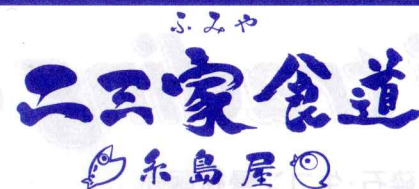 ふみや
二三家食道
糸島屋